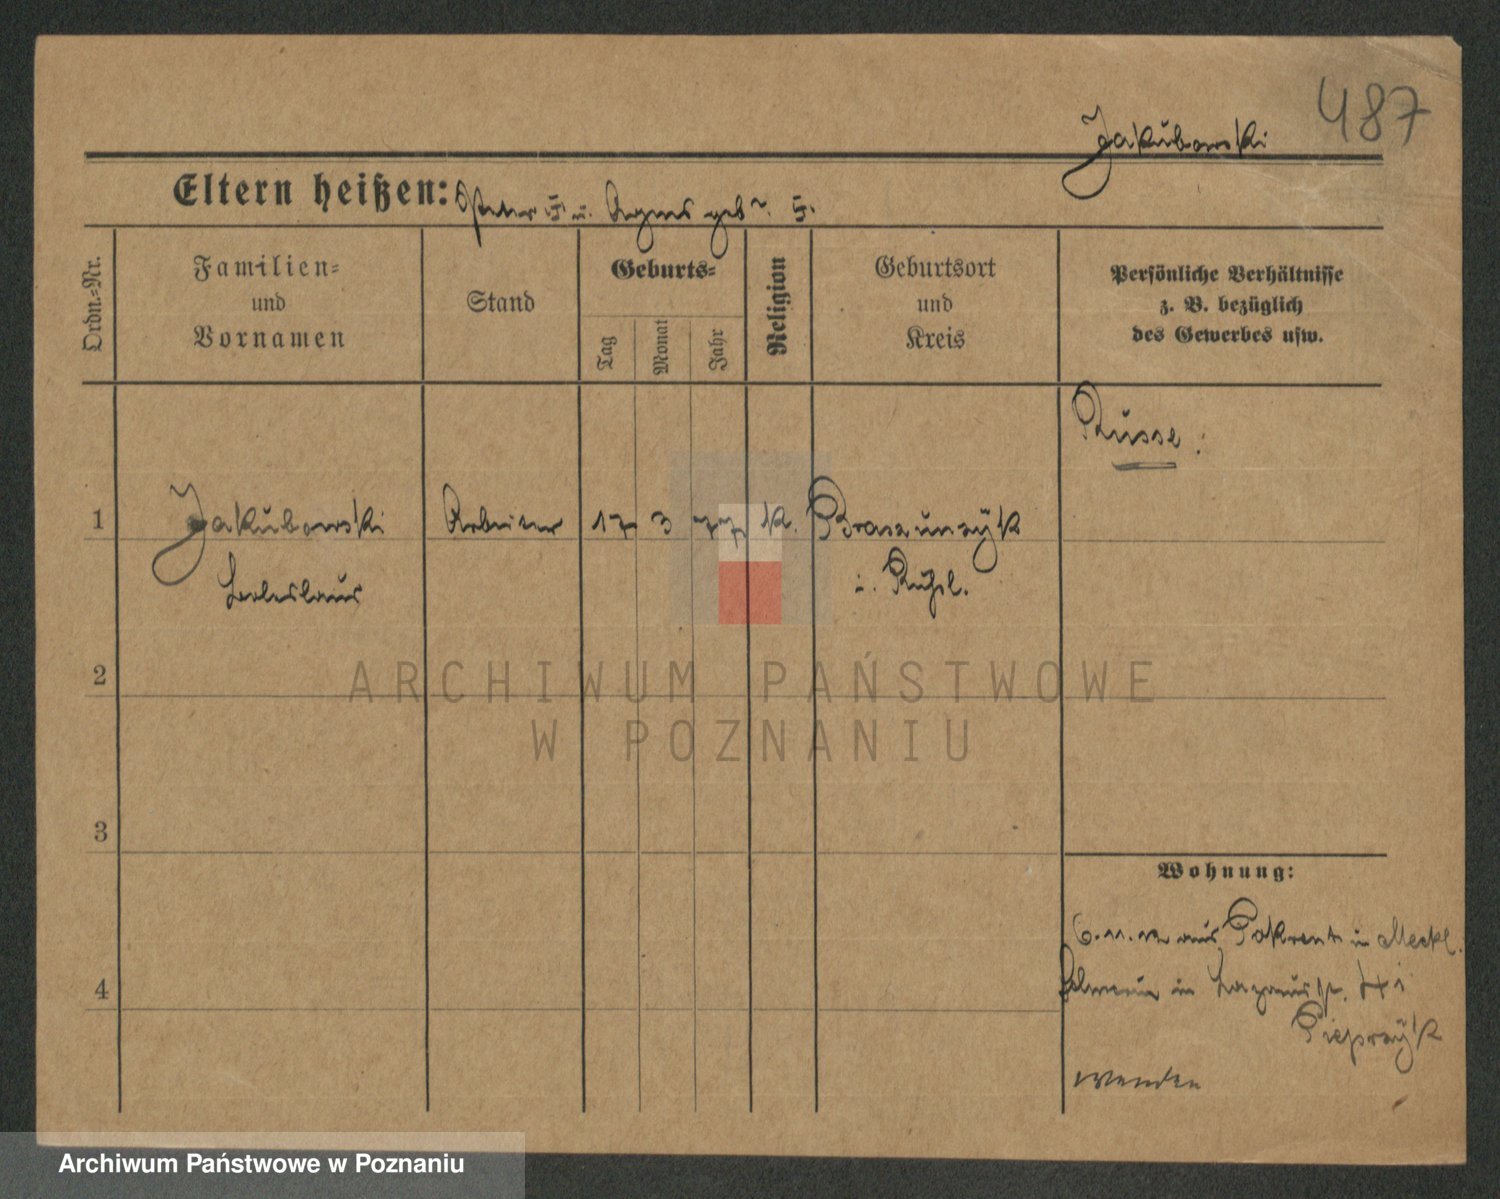 487
Jakubowski
Eltern heißen: Peter u. Agnes geb.
Ordn.-Nr.
Familien-
und
Vornamen
Stand
Geburts-
Tag
Monat
Jahr
Religion
Geburtsort
und
Kreis
Persönliche Verhältnisse
z. B. bezüglich
des Gewerbes usw.
Russe.
1 Jakubowski Arbeiter 17 3 77 k.
Boleslaus i. Rußl.
2
3
4
Wohnung:
6. 11. aus in Meckl.
Schwerin in
wenden
ARCHIWUM PAŃSTWOWE
W POZNANIU
Archiwum Państwowe w Poznaniu